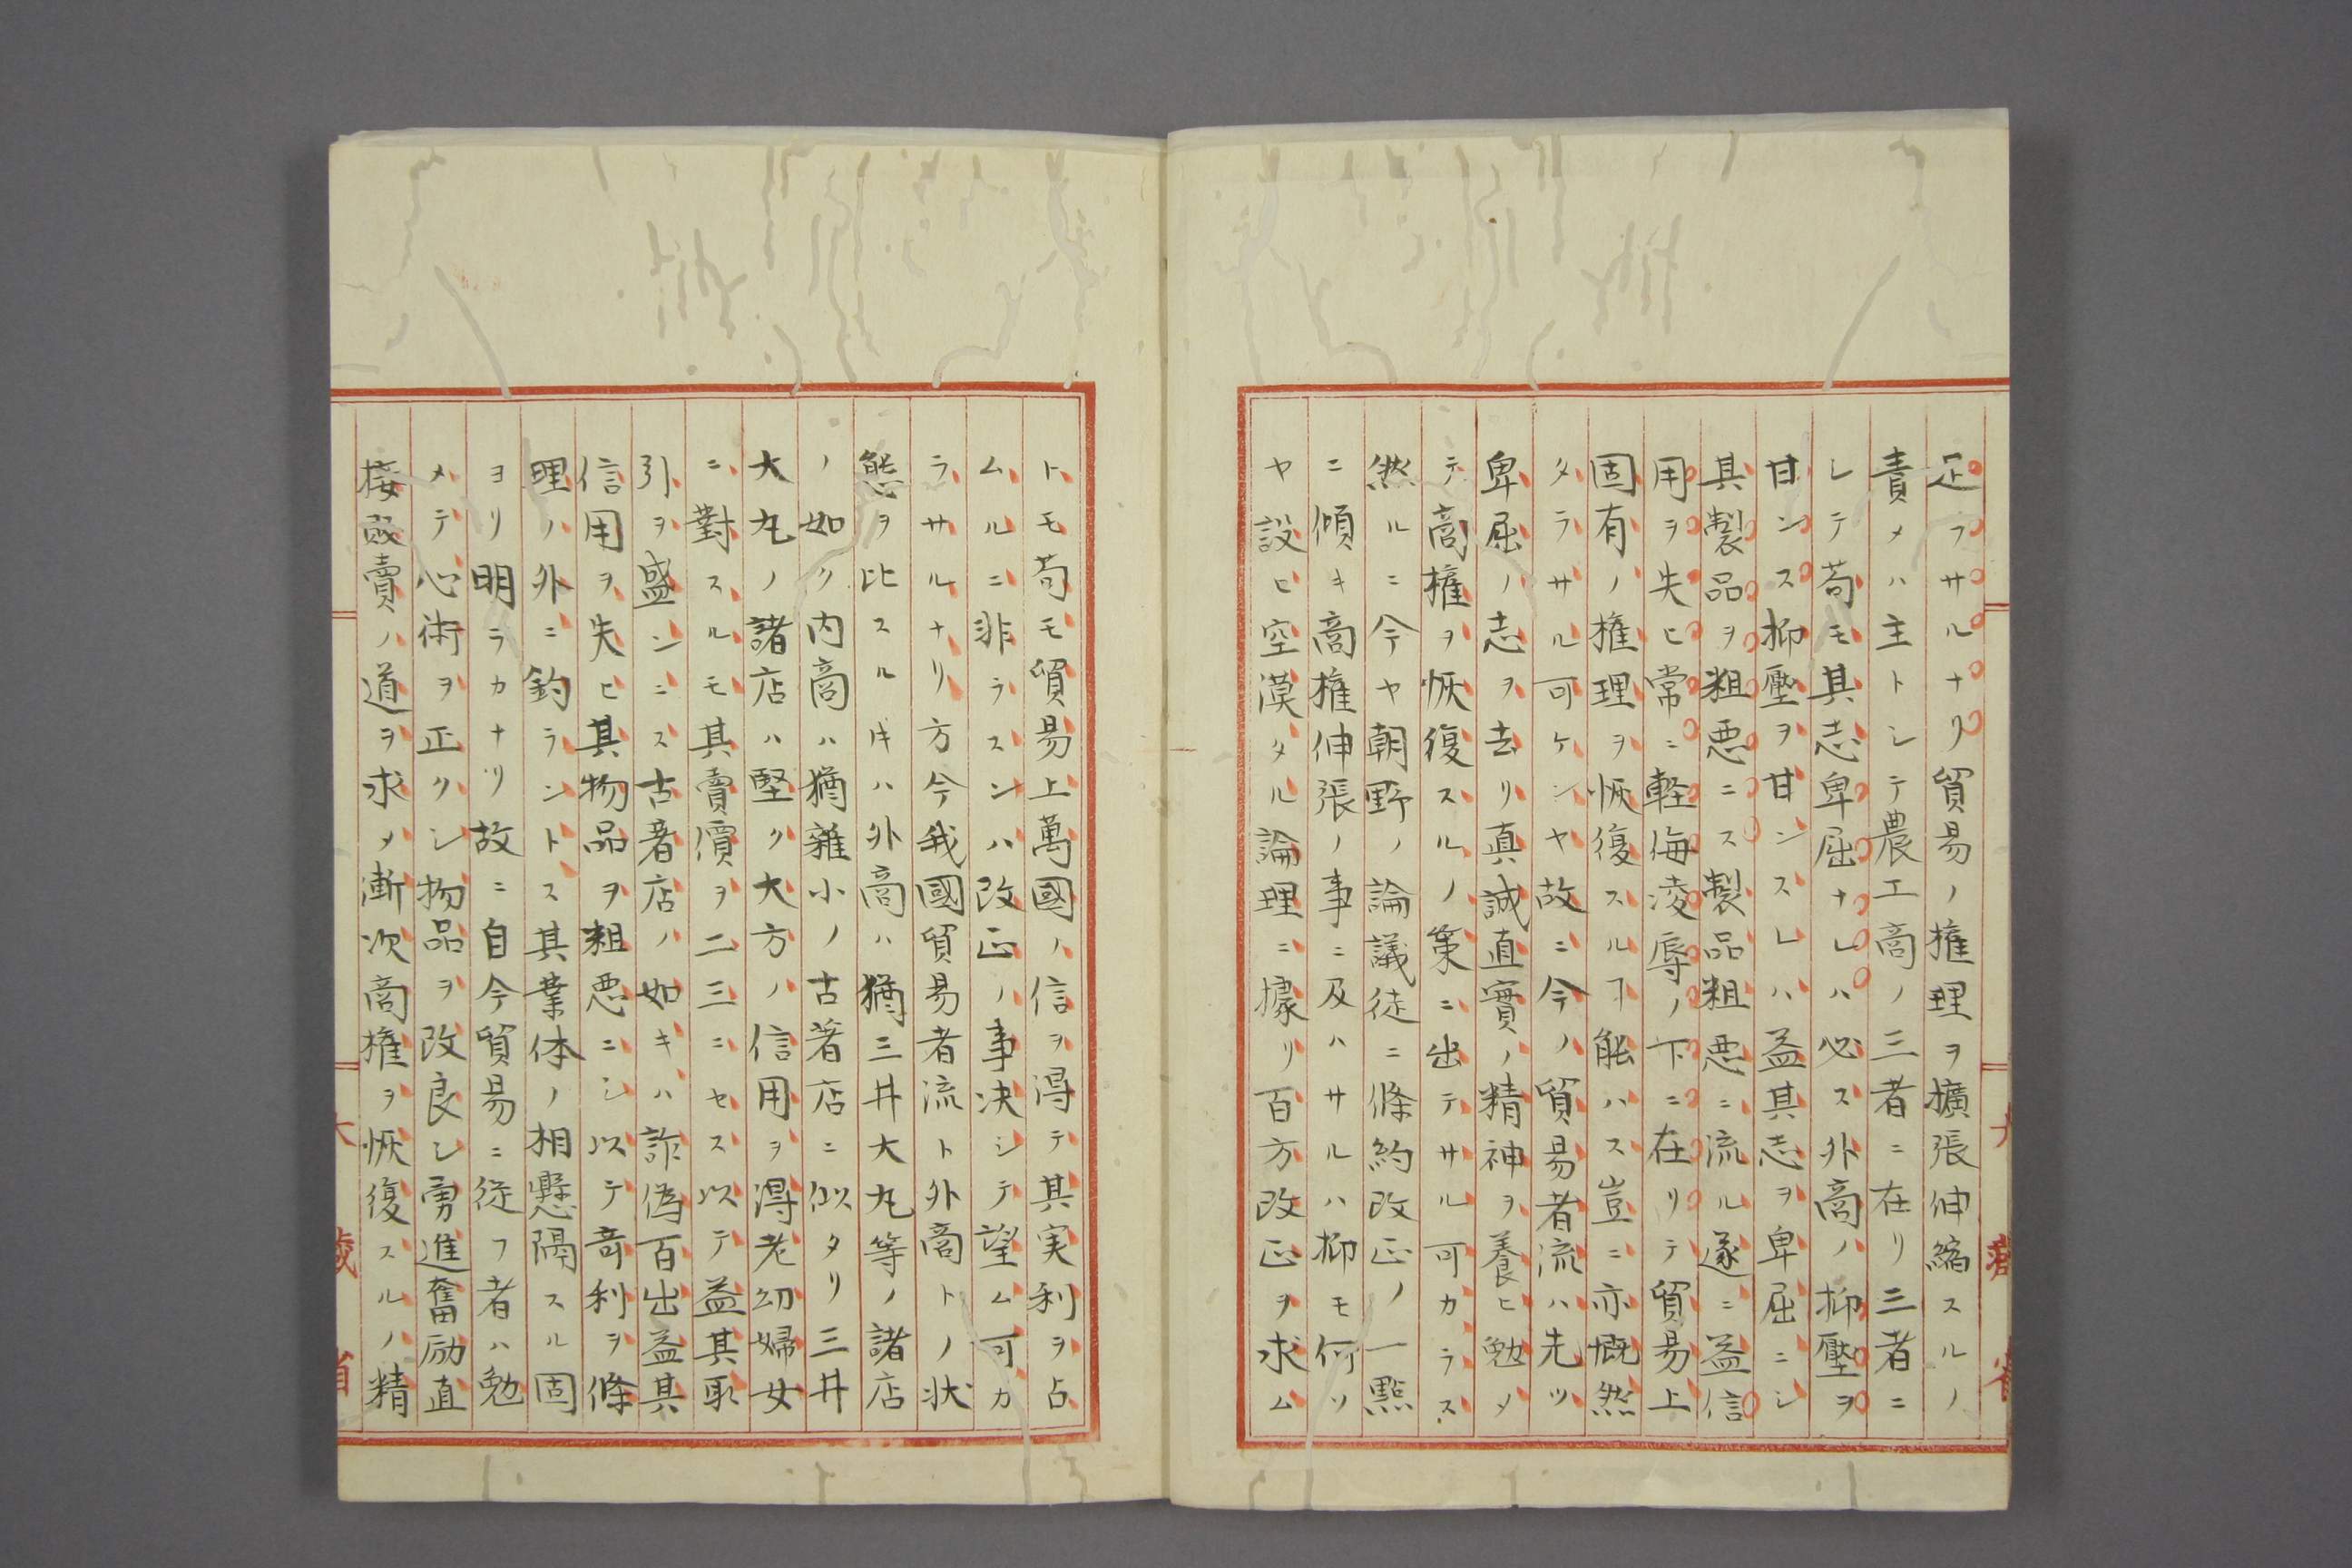 足ラサルナリ貿易ノ権理ヲ擴張伸縮スルノ
責メハ主トシテ農工商ノ三者ニ在リ三者ニ
シテ苟モ其志卑屈ナレハ必ス外商ノ抑壓ヲ
甘ンス抑壓ヲ甘ンスレハ益其志ヲ卑屈ニシ
其製品ヲ粗悪ニス製品粗悪ニ流ル遂ニ益信
用ヲ失ヒ常ニ軽侮凌辱ノ下ニ在リテ貿易上
固有ノ権理ヲ恢復スルヿ能ハス豈ニ亦慨然
タラサル可ケンヤ故ニ今ノ貿易者流ハ先ツ
卑屈ノ志ヲ去リ真誠直實ノ精神ヲ養ヒ勉メ
テ商権ヲ恢復スルノ策ニ出テサル可カラス
然ルニ今ヤ朝野ノ論議徒ニ條約改正ノ一點
ニ傾キ商権伸張ノ事ニ及ハサルハ抑モ何ソ
ヤ設ヒ空漠タル論理ニ據リ百方改正ヲ求ム
トモ苟モ貿易上萬國ノ信ヲ得テ其実利ヲ占
ムルニ非ラスンハ改正ノ事决シテ望ム可カ
ラサルナリ方今我國貿易者流ト外商トノ状
態ヲ比スルキハ外商ハ猶三井大丸等ノ諸店
ノ如ク内商ハ猶雜小ノ古著店ニ似タリ三井
大丸ノ諸店ハ堅ク大方ノ信用ヲ得老幼婦女
ニ對スルモ其賣價ヲ二三ニセス以テ益其取
引ヲ盛ンニス古著店ノ如キハ詐偽百出益其
信用ヲ失ヒ其物品ヲ粗悪ニシ以テ奇利ヲ條
理ノ外ニ釣ラントス其業体ノ相懸隔スル固
ヨリ明ラカナリ故ニ自今貿易ニ従フ者ハ勉
メテ心術ヲ正クシ物品ヲ改良シ勇進奮励直
接 賣ノ道ヲ求メ漸次商権ヲ恢復スルノ精
大藏省